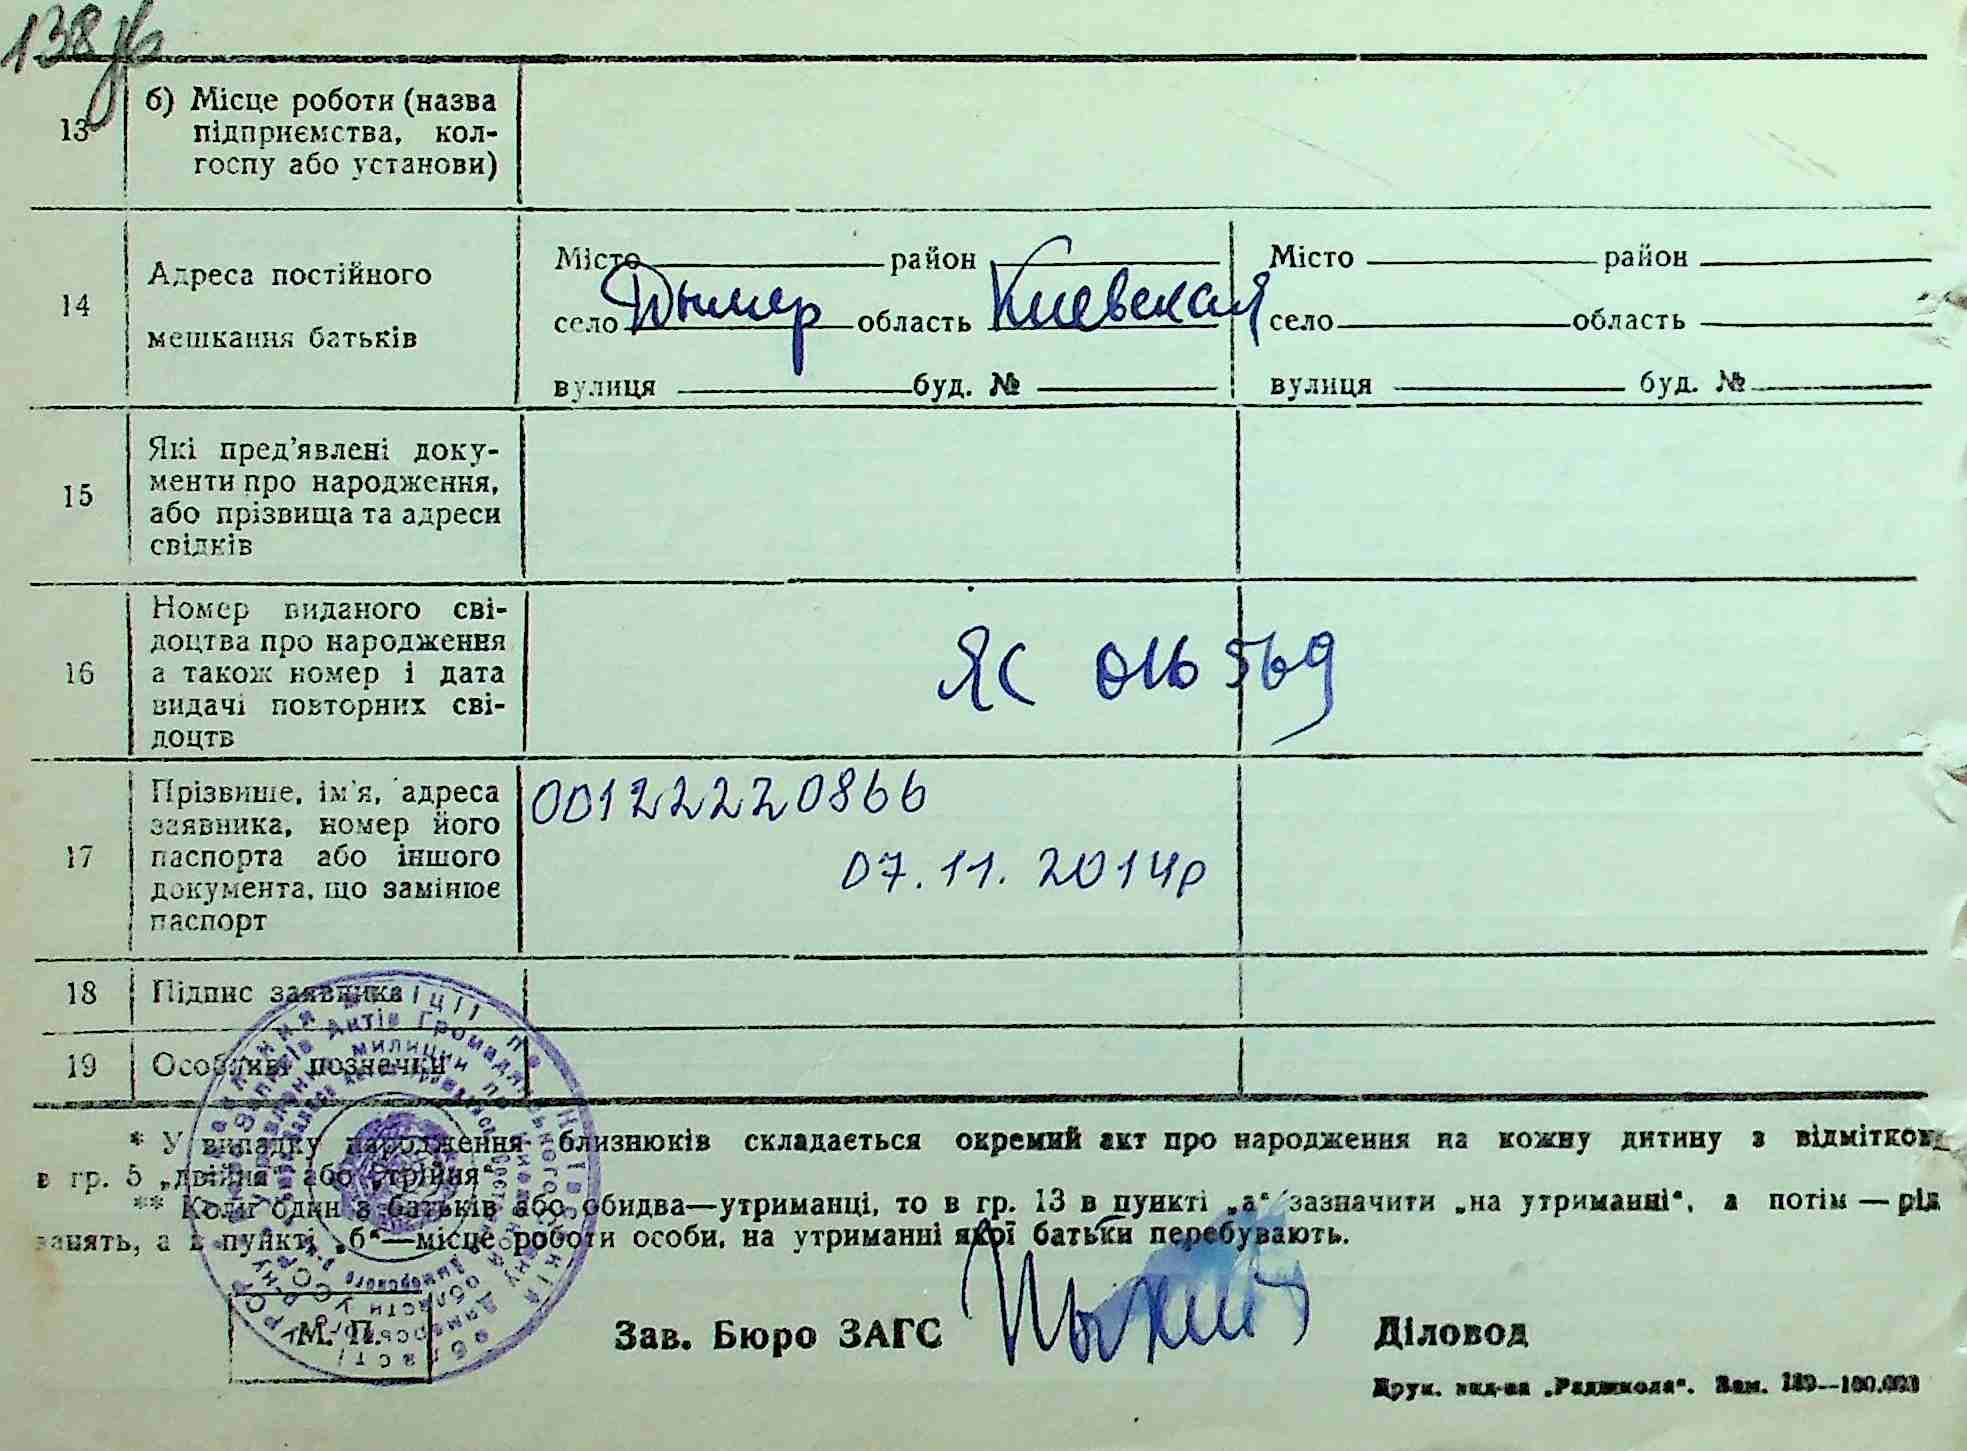 138
13
б) Місце роботи (назва
підприємства, кол-
госпу або установи)
14
Адреса постійного
мешкання батьків
Місто район
село Дымер область Киевская
вулиця буд. №
Місто район
село область
вулиця буд. №
15
Які пред'явлені доку-
менти про народження,
або прізвища та адреси
свідків
16
Номер виданого сві-
доцтва про народження
а також номер і дата
видачі повторних сві-
доцтв
ЯС 016569
17
Прізвише, ім'я, адреса
заявника, номер його
паспорта або іншого
документа, що замінює
паспорт
00122220866
07.11.2014р
18
Підпис заявника
19
Особливі позначки
* У випадку народження близнюків складається окремий акт про народження на кожну дитину з відміткою
в гр. 5 „двійня" або „трійня".
** Коли один з батьків або обидва—утриманці, то в гр. 13 в пункті „а" зазначити „на утриманні", а потім — рід
занять, а в пункті „б"—місце роботи особи, на утриманні якої батьки перебувають.
М. П.
Зав. Бюро ЗАГС
Діловод
Друк. вид-ва „Радшкола". Зам. 189—100.000